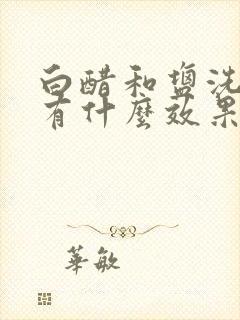 白醋和盐洗
有什麼效果
華敏